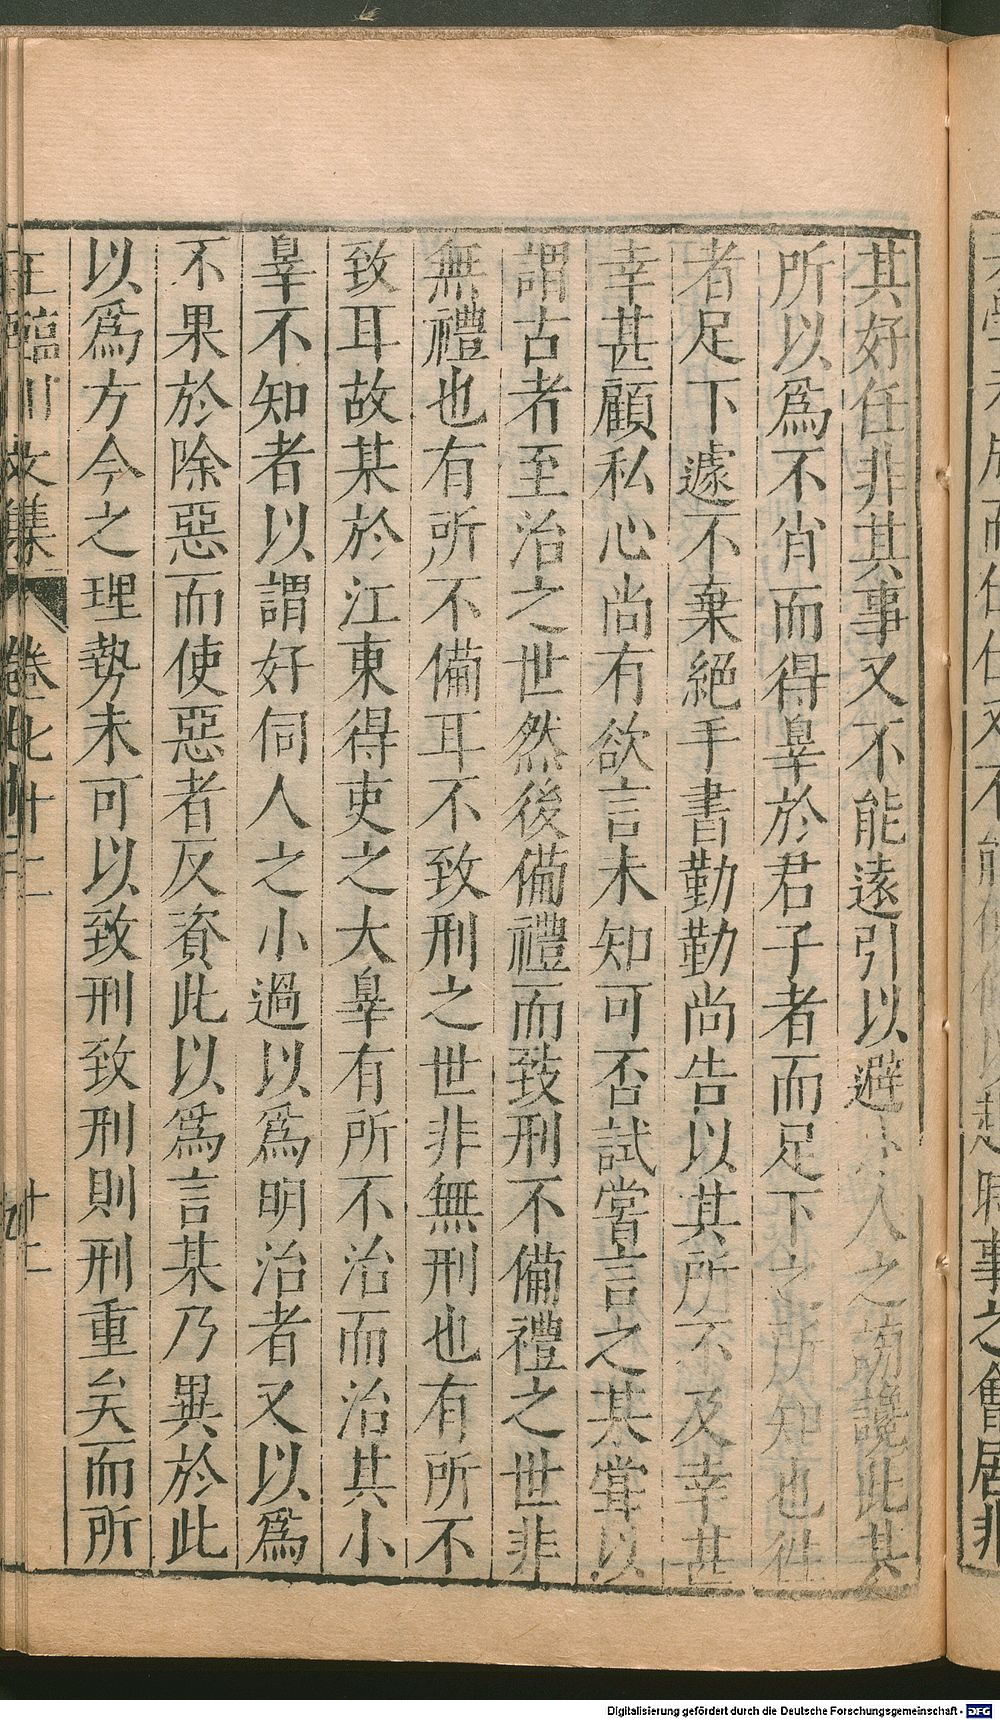 其好任非其事又不能遠引以避小人之謗讒此其
所以爲不肖而得辠於君子者而足下之所知也徃
者足下遽不棄絕手書勤勤尚告以其所不及幸甚
幸甚顧私心尚有欲言未知可否試嘗言之某嘗以
謂古者至治之世然後備禮而致刑不備禮之世非
無禮也有所不備耳不致刑之世非無刑也有所不
致耳故某於江東得吏之大辠有所不治而治其小
辠不知者以謂好伺人之小過以爲明治者又以爲
不果於除惡而使惡者反資此以爲言某乃異於此
以爲方今之理勢未可以致刑致刑則刑重矣而所
王臨川文集 卷七十二 十二
Digitalisierung gefördert durch die Deutsche Forschungsgemeinschaft - DFG